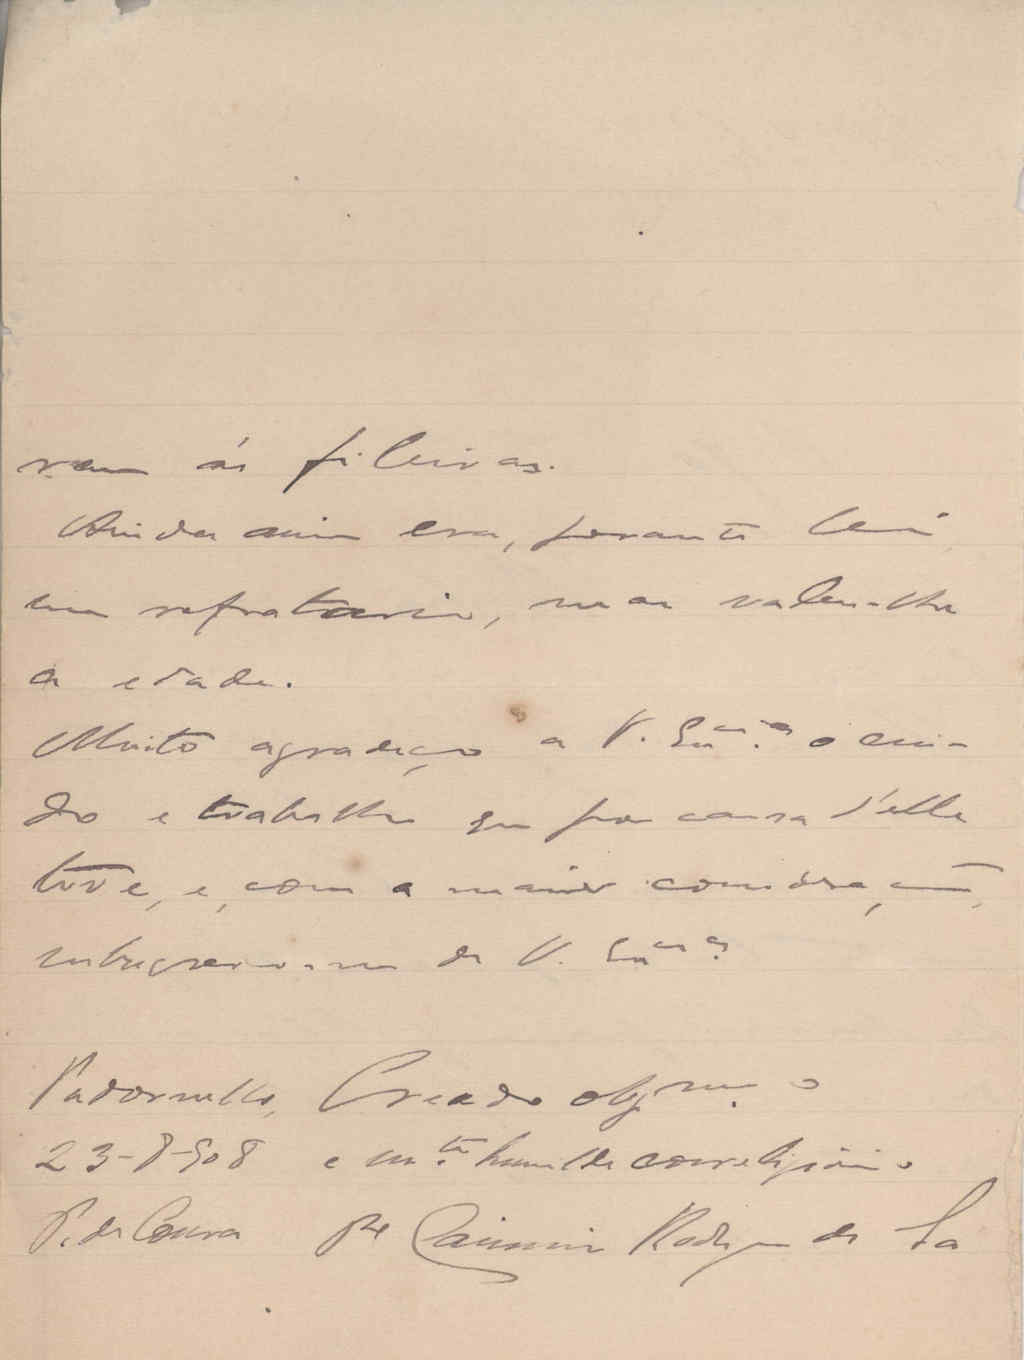 ram ás fileiras.
Ainda assim era, perante lei
um refratario, mas valeu-lhe
a edade.
Muito agradeço a V. Ex.ª o cui-
do e trabalho que por causa d'elle
teve, e, com a maior consideração,
subscrevo-me de V. Ex.ª
Padornello, Creado obg.mo
23-8-908 e m.to humilde correligionario
P. de Coura P.e Casimiro Rodrigues de Sá